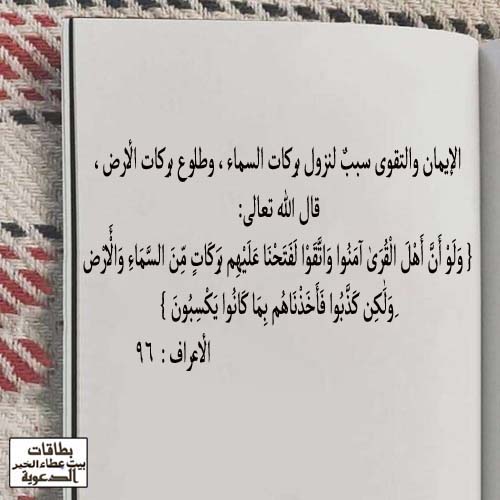 الإيمان والتقوى سببٌ لنزول بركات السماء ، وطلوع بركات الأرض ،
قال الله تعالى:
{ وَلَوْ أَنَّ أَهْلَ الْقُرَىٰ آمَنُوا وَاتَّقَوْا لَفَتَحْنَا عَلَيْهِم بَرَكَاتٍ مِّنَ السَّمَاءِ وَالْأَرْضِ
وَلَٰكِن كَذَّبُوا فَأَخَذْنَاهُم بِمَا كَانُوا يَكْسِبُونَ }
الأعراف : ٩٦
بطاقات
بيت عطاء الخير
الدعوية